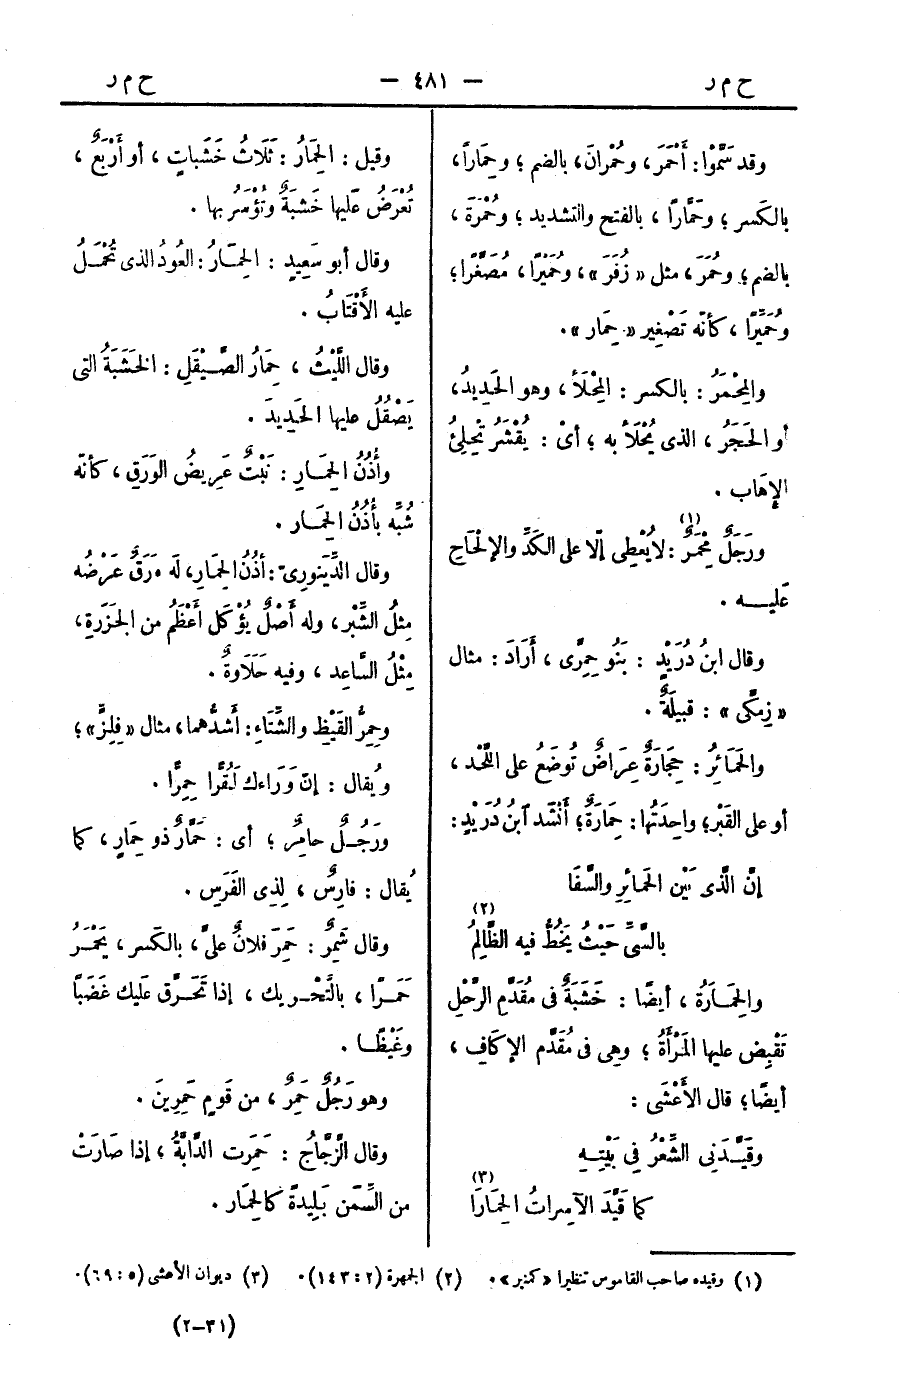 ح م ر — ٤٨١ — ح م ر
وقد سَمَّوْا: أَحْمَرَ، وحُمْرانَ، بالضم؛ وحِمَاراً،
بالكَسر؛ وحَمَّاراً، بالفتح والتشديد؛ وحُمْرَةَ،
بالضم؛ وحُمَرَ، مثل «زُفَرَ»، وحُمَيْرًا، مُصَغَّرا؛
وحُمَيِّرًا، كأنّه تَصْغِير «حِمَار».
والمِحْمَرُ: بالكسر: المِحْلَأُ، وهو الحَدِيدُ،
أو الحَجَرُ، الذى يُحْلَأ به؛ أىْ: يُقْشَرُ تِحْلِئُ
الإهَاب.
ورَجَلٌ مِحْمَرٌ(١): لا يُعْطِى إلّا على الكَدِّ والإلْحَاحِ
عَليـــه.
وقال ابنُ دُرَيْدٍ: بَنُو حِمِرَّى، أَرَادَ: مثال
«زِمِكَّى»: قبيلَةٌ.
والحَمَائِرُ: حِجَارَةٌ عِرَاضٌ تُوضَعُ على اللَّحْد،
أو على القَبْر؛ واحِدَتُها: حِمَارَةٌ؛ أَنْشَد آبنُ دُرَيْدٍ:
إنَّ الَّذى بَيْن الحَمائِرِ والسَّفَا
بالسِّىِّ حَيْثُ يَخُطُّ فيه الظَّالِمُ(٢)
والحِمَـارَةُ، أيضًا: خَشَبَةٌ فى مُقَدَّمِ الرَّحْلِ
تَقْبِض عليها المَرْأَةُ؛ وهى فى مُقَدَّم الإكَافِ،
أيضًا؛ قال الأَعْشَى:
وقَيَّـدَنِى الشَّعْرُ فِى بَيْتِـهِ
كما قَيَّدَ الآسِراتُ الحِمَارَا(٣)
وقيل: الحِمَارُ: ثَلَاثُ خَشَبَاتٍ، أو أَرْبَعٌ،
تُعْرَضُ عَلَيها خَشَبَةٌ وتُؤْسَر بها.
وقال أبو سَعِيدٍ: الحِمَـارُ: العُودُ الذى تُحْمَـلُ
عليه الأَقْتَابُ.
وقال اللَّيْثُ، حِمَارُ الصَّـيْقَلِ: الخَشَبَةُ التى
يَصْقُلُ عليها الحَدِيدَ.
وأُذُنُ الحِمَـارِ: نَبْتٌ عَرِيضُ الوَرَقِ، كأنّه
شُبِّه بأُذُنِ الحِمَـار.
وقال الدِّينورِىّ: أُذُنُ الحِمَارِ، لَه وَرَقٌ عَرْضُه
مِثلُ الشِّبْر، وله أَصْلٌ يُؤْكَل أَعْظَمُ من الجَزَرةِ،
مِثْلُ السَّاعِد، وفيه حَلَاوَةٌ.
وحِمِرُّ القَيْظِ والشِّتَاءِ: أَشَدُّهما، مثال «فِلِزّ»؛
ويُقال: إنّ وَرَاءك لَقُرًّا حِمِرًّا.
ورَجُـلٌ حامِرٌ؛ أى: حَمَّارٌ ذو حِمَارٍ، كما
يُقال: فارِسٌ، لِذِى الفَرَسِ.
وقال شَمِرٌ: حَمِرَ فلانٌ علىَّ، بالكَسر، يَحْمَـرُ
حَمَـرًا، بالتَّحْـريك، إذا تَحَرَّق عليك غَضَبًا
وغَيْظًـا.
وهو رَجُلٌ حَمِرٌ، من قَومٍ حَمِرِينَ.
وقال الزَّجَّاجُ: حَمِرَت الدَّابَّةُ، إذا صَارَتْ
من السِّمَن بَلِيدةً كالحِمَار.
(١) وقيده صاحب القاموس تنظيرا «كمنبر». (٢) الجمهرة (٢ : ١٤٣). (٣) ديوان الأعشى (٥ : ٦٩).
(٣١ – ٢)